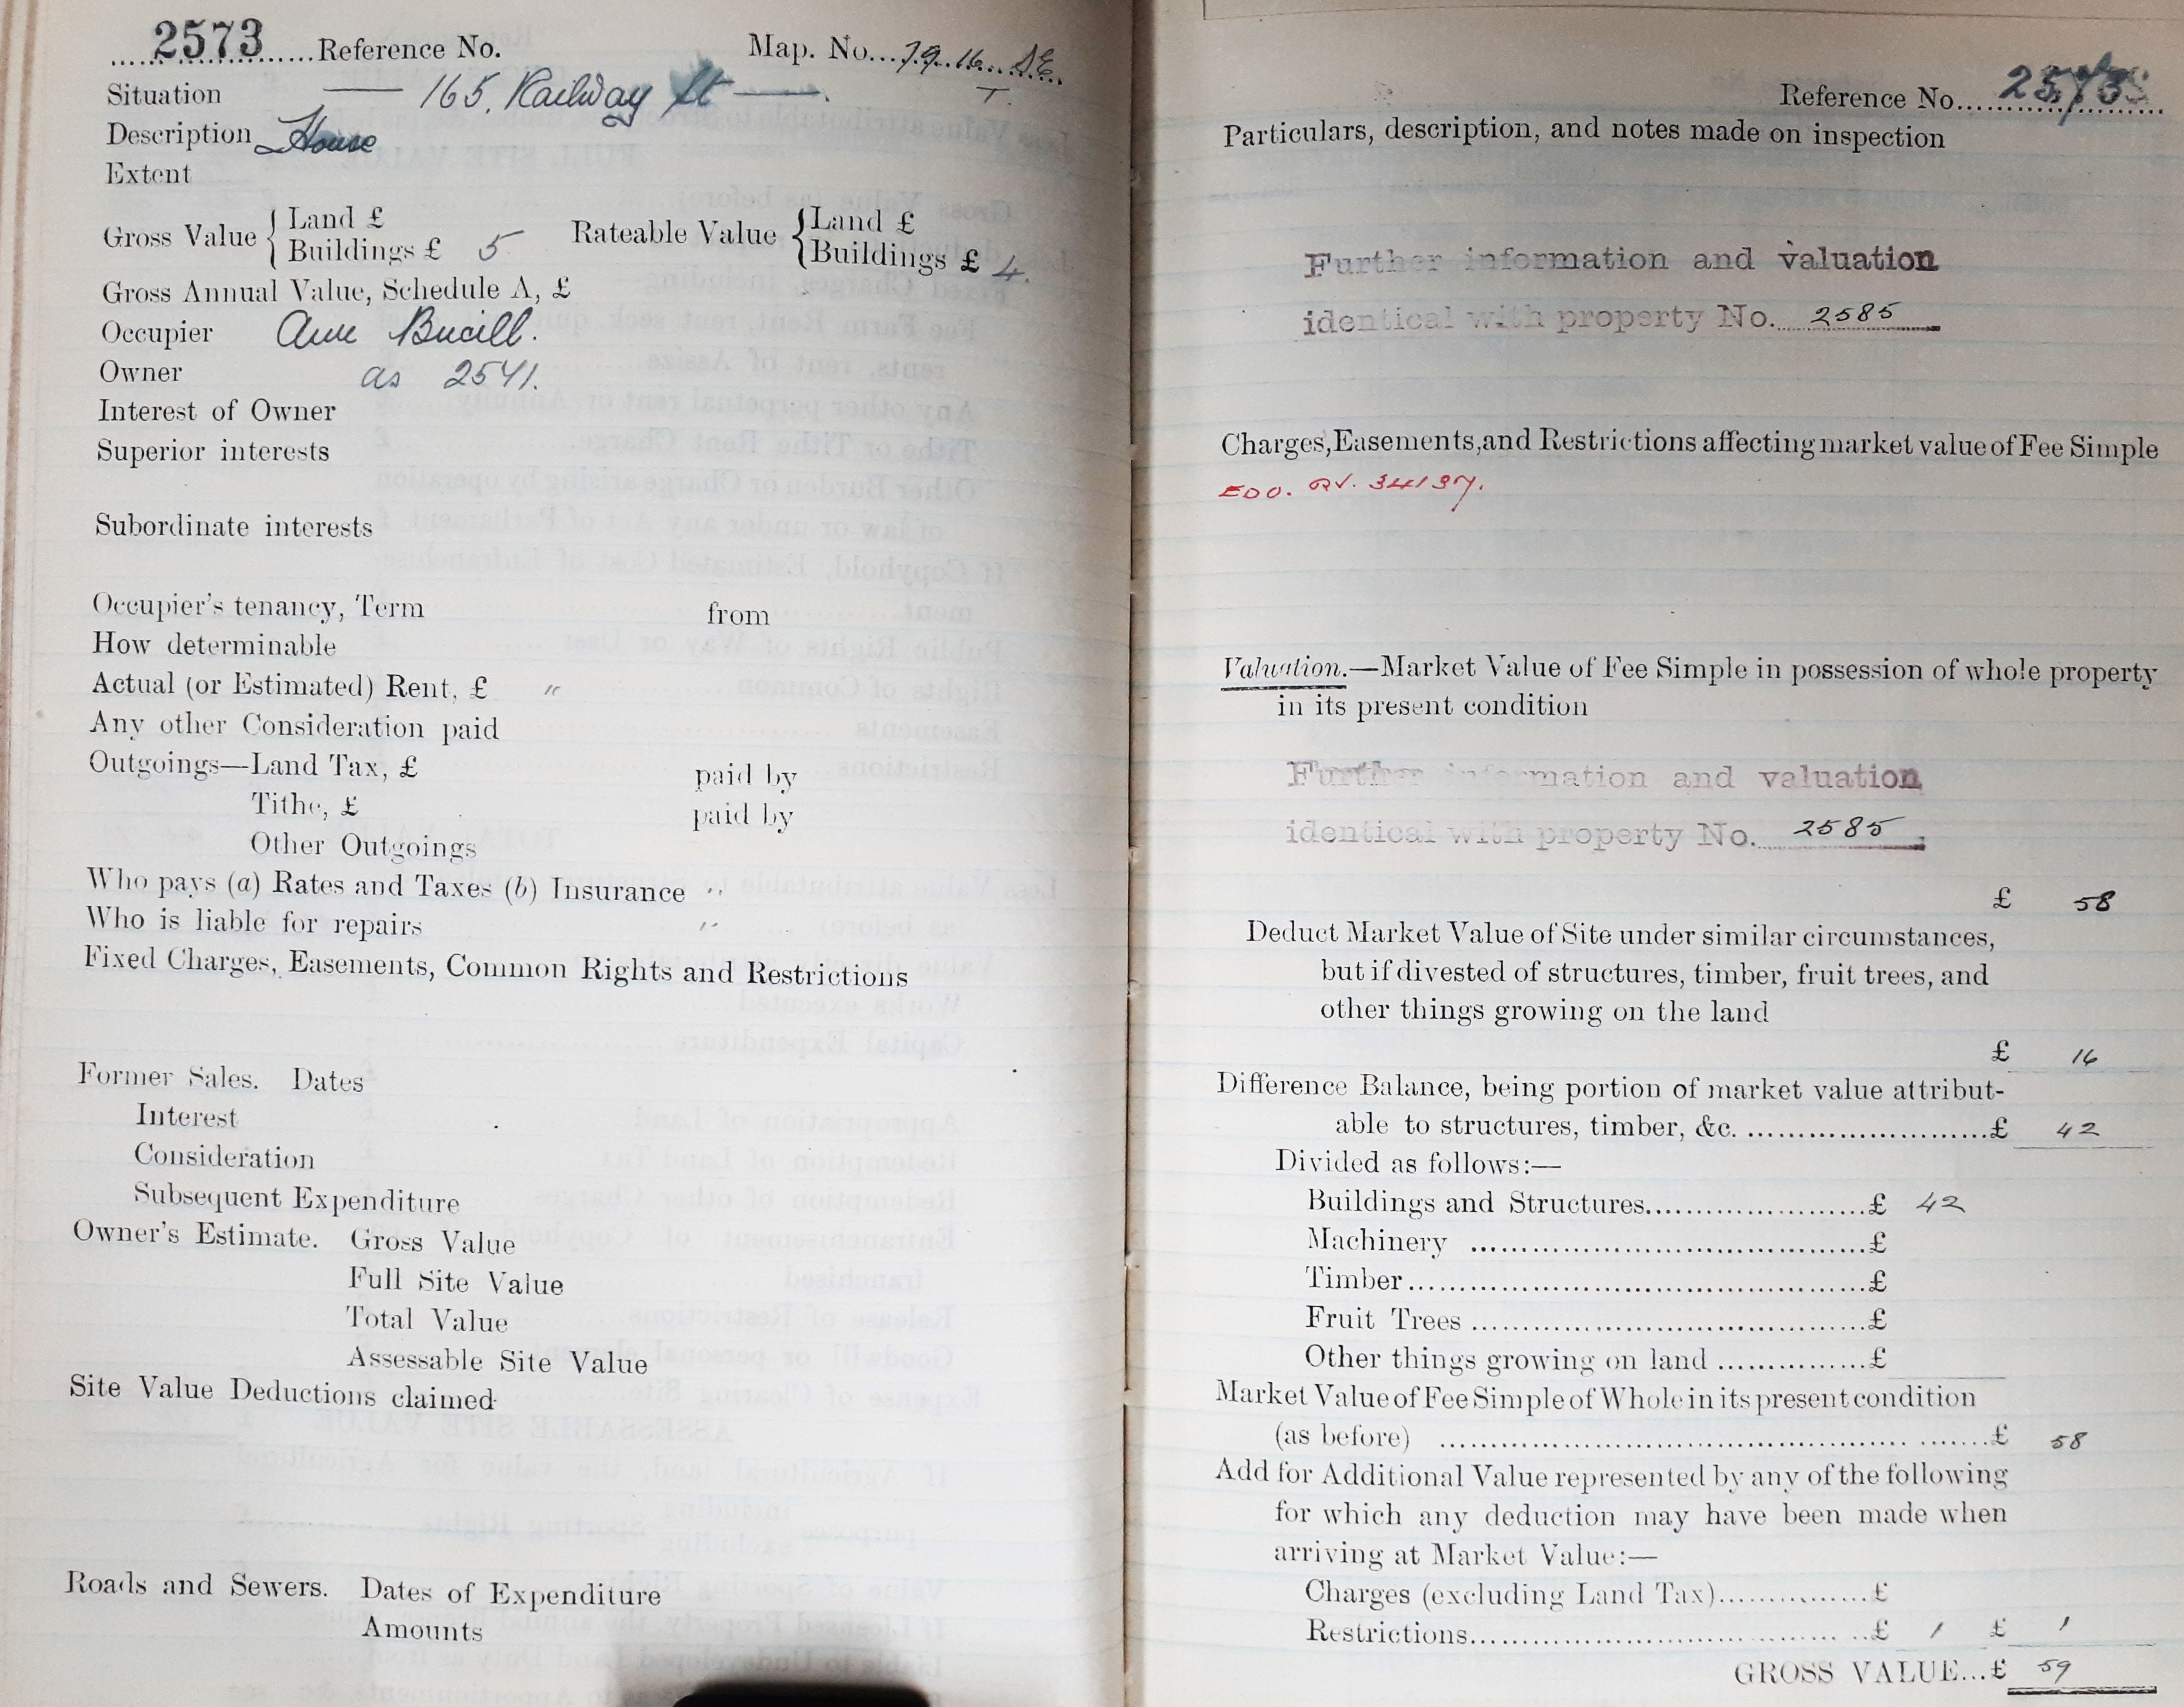 2573 Reference No.
Map. No... 79.16. SE.
T.
Situation — 165, Railway St —.
Description House
Extent
Gross Value { Land £
Buildings £ 5
Rateable Value { Land £
Buildings £ 4.
Gross Annual Value, Schedule A, £
Occupier Ann
Owner as 2541.
Interest of Owner
Superior interests
Subordinate interests
Occupier's tenancy, Term from
How determinable
Actual (or Estimated) Rent, £ "
Any other Consideration paid
Outgoings—Land Tax, £ paid by
Tithe, £ paid by
Other Outgoings
Who pays (a) Rates and Taxes (b) Insurance "
Who is liable for repairs "
Fixed Charges, Easements, Common Rights and Restrictions
Former Sales. Dates
Interest
Consideration
Subsequent Expenditure
Owner's Estimate. Gross Value
Full Site Value
Total Value
Assessable Site Value
Site Value Deductions claimed
Roads and Sewers. Dates of Expenditure
Amounts
Reference No. 2573
Particulars, description, and notes made on inspection
Further information and valuation
identical with property No. 2585
Charges, Easements, and Restrictions affecting market value of Fee Simple
EDO.
Valuation.—Market Value of Fee Simple in possession of whole property
in its present condition
Further information and valuation
identical with property No. 2585
£ 58
Deduct Market Value of Site under similar circumstances,
but if divested of structures, timber, fruit trees, and
other things growing on the land
£ 16
Difference Balance, being portion of market value attribut-
able to structures, timber, &c. £ 42
Divided as follows:—
Buildings and Structures £ 42
Machinery £
Timber £
Fruit Trees £
Other things growing on land £
Market Value of Fee Simple of Whole in its present condition
(as before) £ 58
Add for Additional Value represented by any of the following
for which any deduction may have been made when
arriving at Market Value:—
Charges (excluding Land Tax) £
Restrictions £ 1 £ 1
GROSS VALUE...£ 59